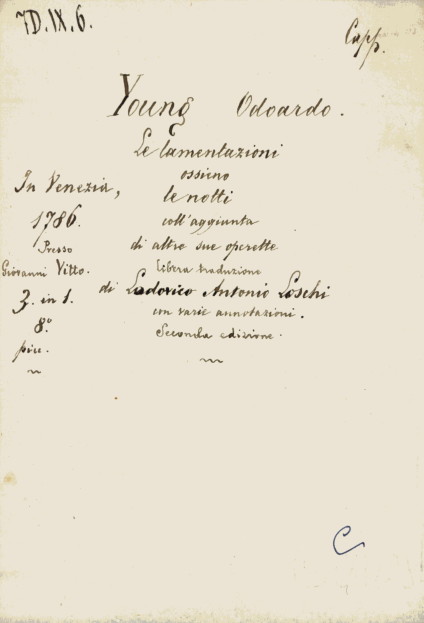 7D.IX.6.
Capp.
Young Odoardo.
Le lamentazioni
ossieno
le notti
coll'aggiunta
di altre sue operette
libera traduzione
di Lodovico Antonio Loschi
con varie annotazioni.
Seconda edizione.
In Venezia,
1786.
Presso
Giovanni Vitto.
3. in 1.
8.º
picc.
C